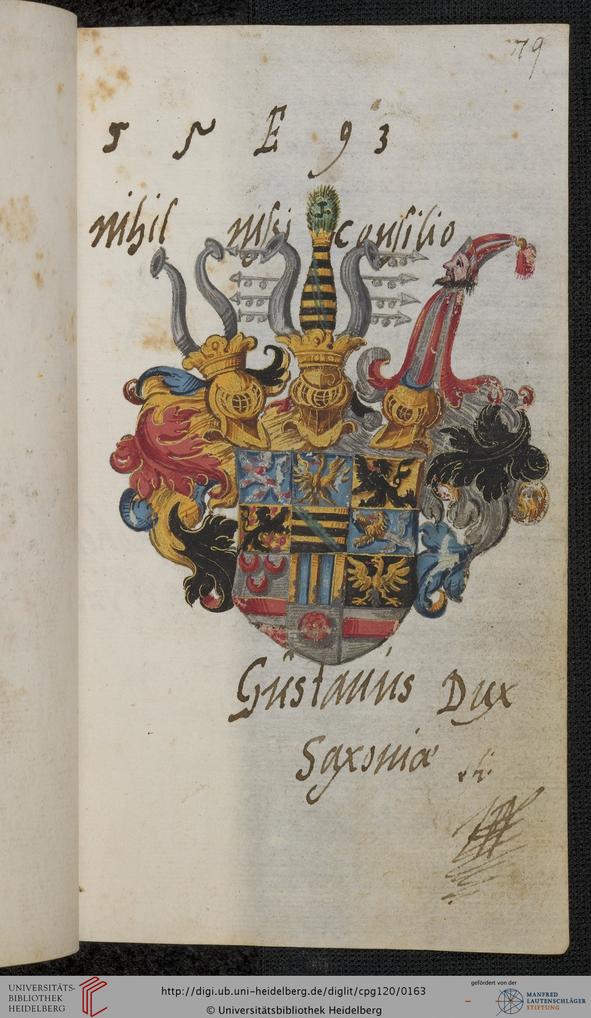 79
5 5 E 9 3
nihil nisi consilio
Gustauus Dux
Saxoniæ
UNIVERSITÄTS-
BIBLIOTHEK
HEIDELBERG
http://digi.ub.uni-heidelberg.de/diglit/cpg120/0163
© Universitätsbibliothek Heidelberg
gefördert von der
MANFRED
LAUTENSCHLÄGER
STIFTUNG